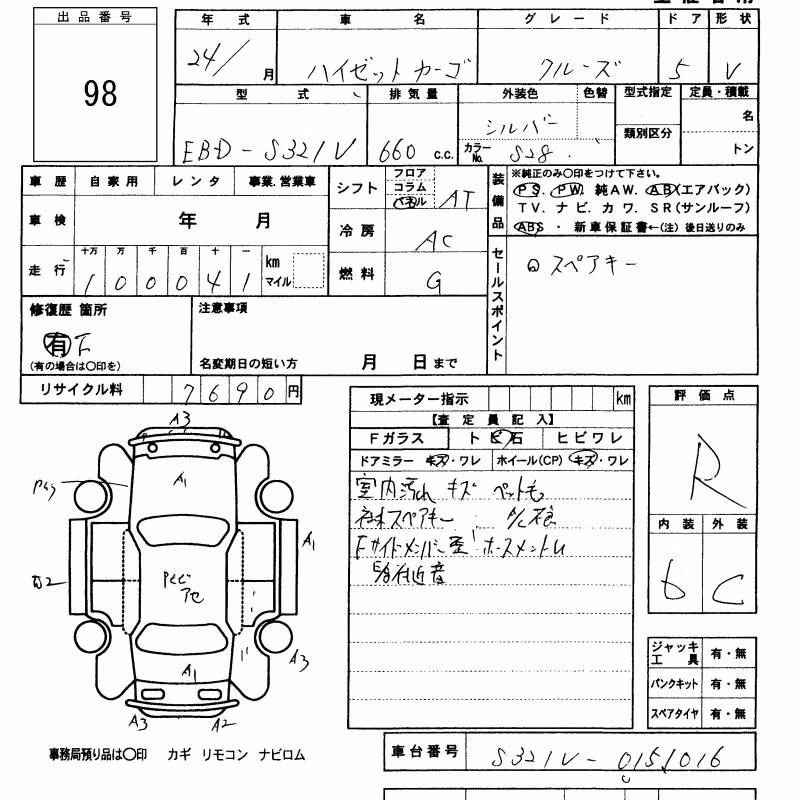 出品番号
98
年式 車名 グレード ドア 形状
24/ 月 ハイゼットカーゴ クルーズ 5 V
型式 排気量 外装色 色替 型式指定 定員・積載
EBD-S321V 660 c.c. シルバー カラーNo. S28 類別区分 名 トン
車歴 自家用 レンタ 事業.営業車
車検 年 月
走行 十万 万 千 百 十 一
1 0 0 0 4 1 km マイル
シフト フロア コラム パネル AT
冷房 AC
燃料 G
装備品 ※純正のみ○印をつけて下さい。
PS. PW. 純AW. AB(エアバック)
TV. ナビ. カワ. SR(サンルーフ)
ABS ・ 新車保証書←(注) 後日送りのみ
セールスポイント
スペアキー
修復歴 箇所
有
(有の場合は○印を)
注意事項
名変期日の短い方 月 日まで
リサイクル料 7690円
現メーター指示 km
【査定員記入】
Fガラス トビ石 ヒビワレ
ドアミラー キズ・ワレ ホイール(CP) キズ・ワレ
室内汚れ キズ
スペアキー
Fサイドメンバー
評価点
R
内装 外装
6 C
ジャッキ工具 有・無
パンクキット 有・無
スペアタイヤ 有・無
A3
A1
A1
A1
A3
A3 A2
事務局預り品は○印 カギ リモコン ナビロム
車台番号 S321V-0151016